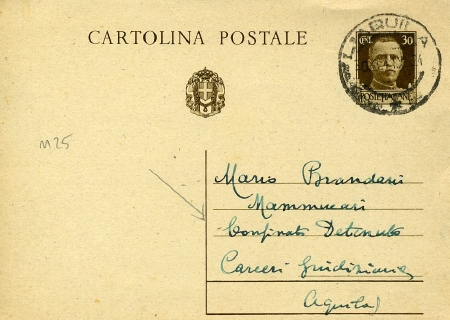 L'AQUILA
CENT. 30
CARTOLINA POSTALE
POSTE ITALIANE
M25
Mario Brandani
Mammucari
Confinato Detenuto
Carceri Giudiziarie
Aquila)